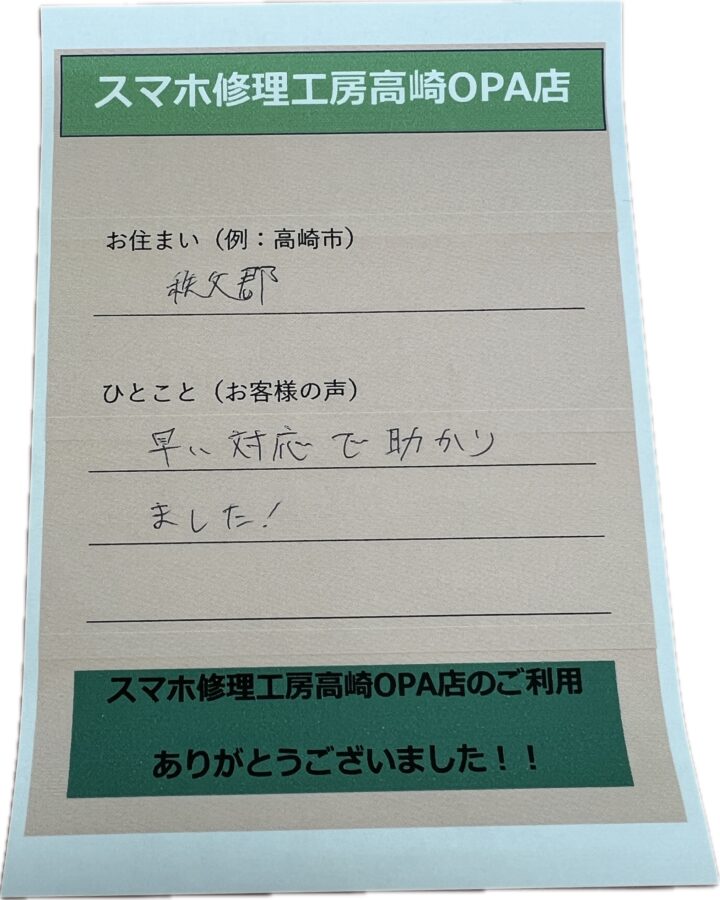 スマホ修理工房高崎OPA店
お住まい（例：高崎市）
秩父郡
ひとこと（お客様の声）
早い対応で助かり
ました！
スマホ修理工房高崎OPA店のご利用
ありがとうございました！！